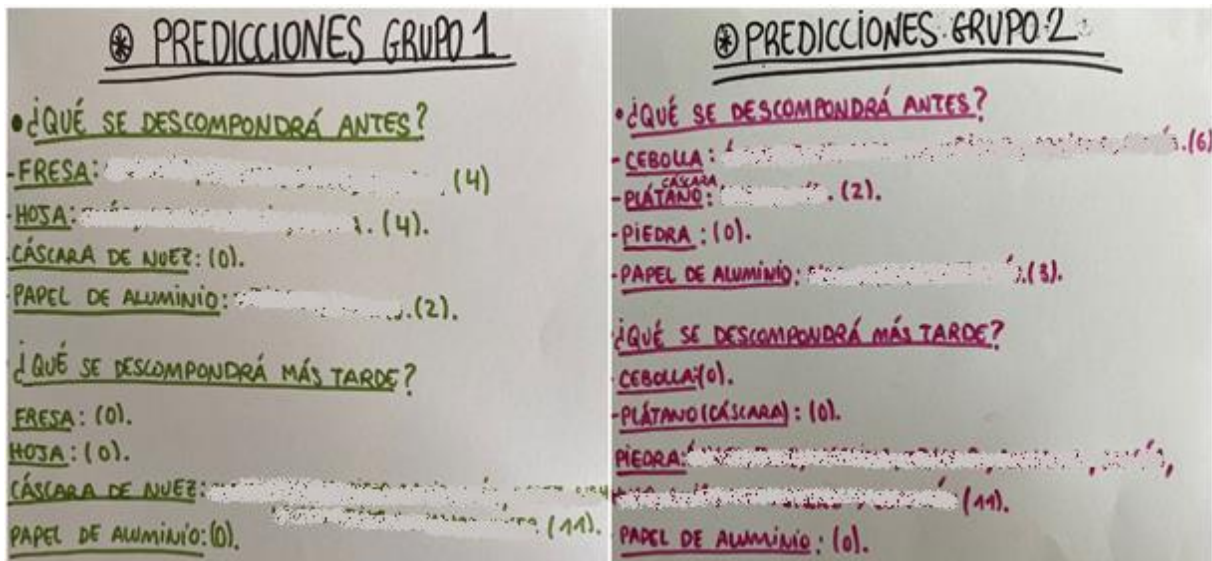 ⊛ PREDICCIONES GRUPO 1
• ¿QUÉ SE DESCOMPONDRÁ ANTES?
- FRESA: (4)
- HOJA: . (4).
CÁSCARA DE NUEZ: (0).
- PAPEL DE ALUMINIO: .(2).
¿QUÉ SE DESCOMPONDRÁ MÁS TARDE?
FRESA: (0).
HOJA: (0).
CÁSCARA DE NUEZ:
(11).
PAPEL DE ALUMINIO: (0).
⊛ PREDICCIONES GRUPO 2
• ¿QUÉ SE DESCOMPONDRÁ ANTES?
- CEBOLLA: .(6)
CÁSCARA
- PLÁTANO: . (2).
- PIEDRA: (0).
- PAPEL DE ALUMINIO: .(3).
¿QUÉ SE DESCOMPONDRÁ MÁS TARDE?
CEBOLLA: (0).
- PLÁTANO (CÁSCARA): (0).
PIEDRA:
(11).
PAPEL DE ALUMINIO: (0).